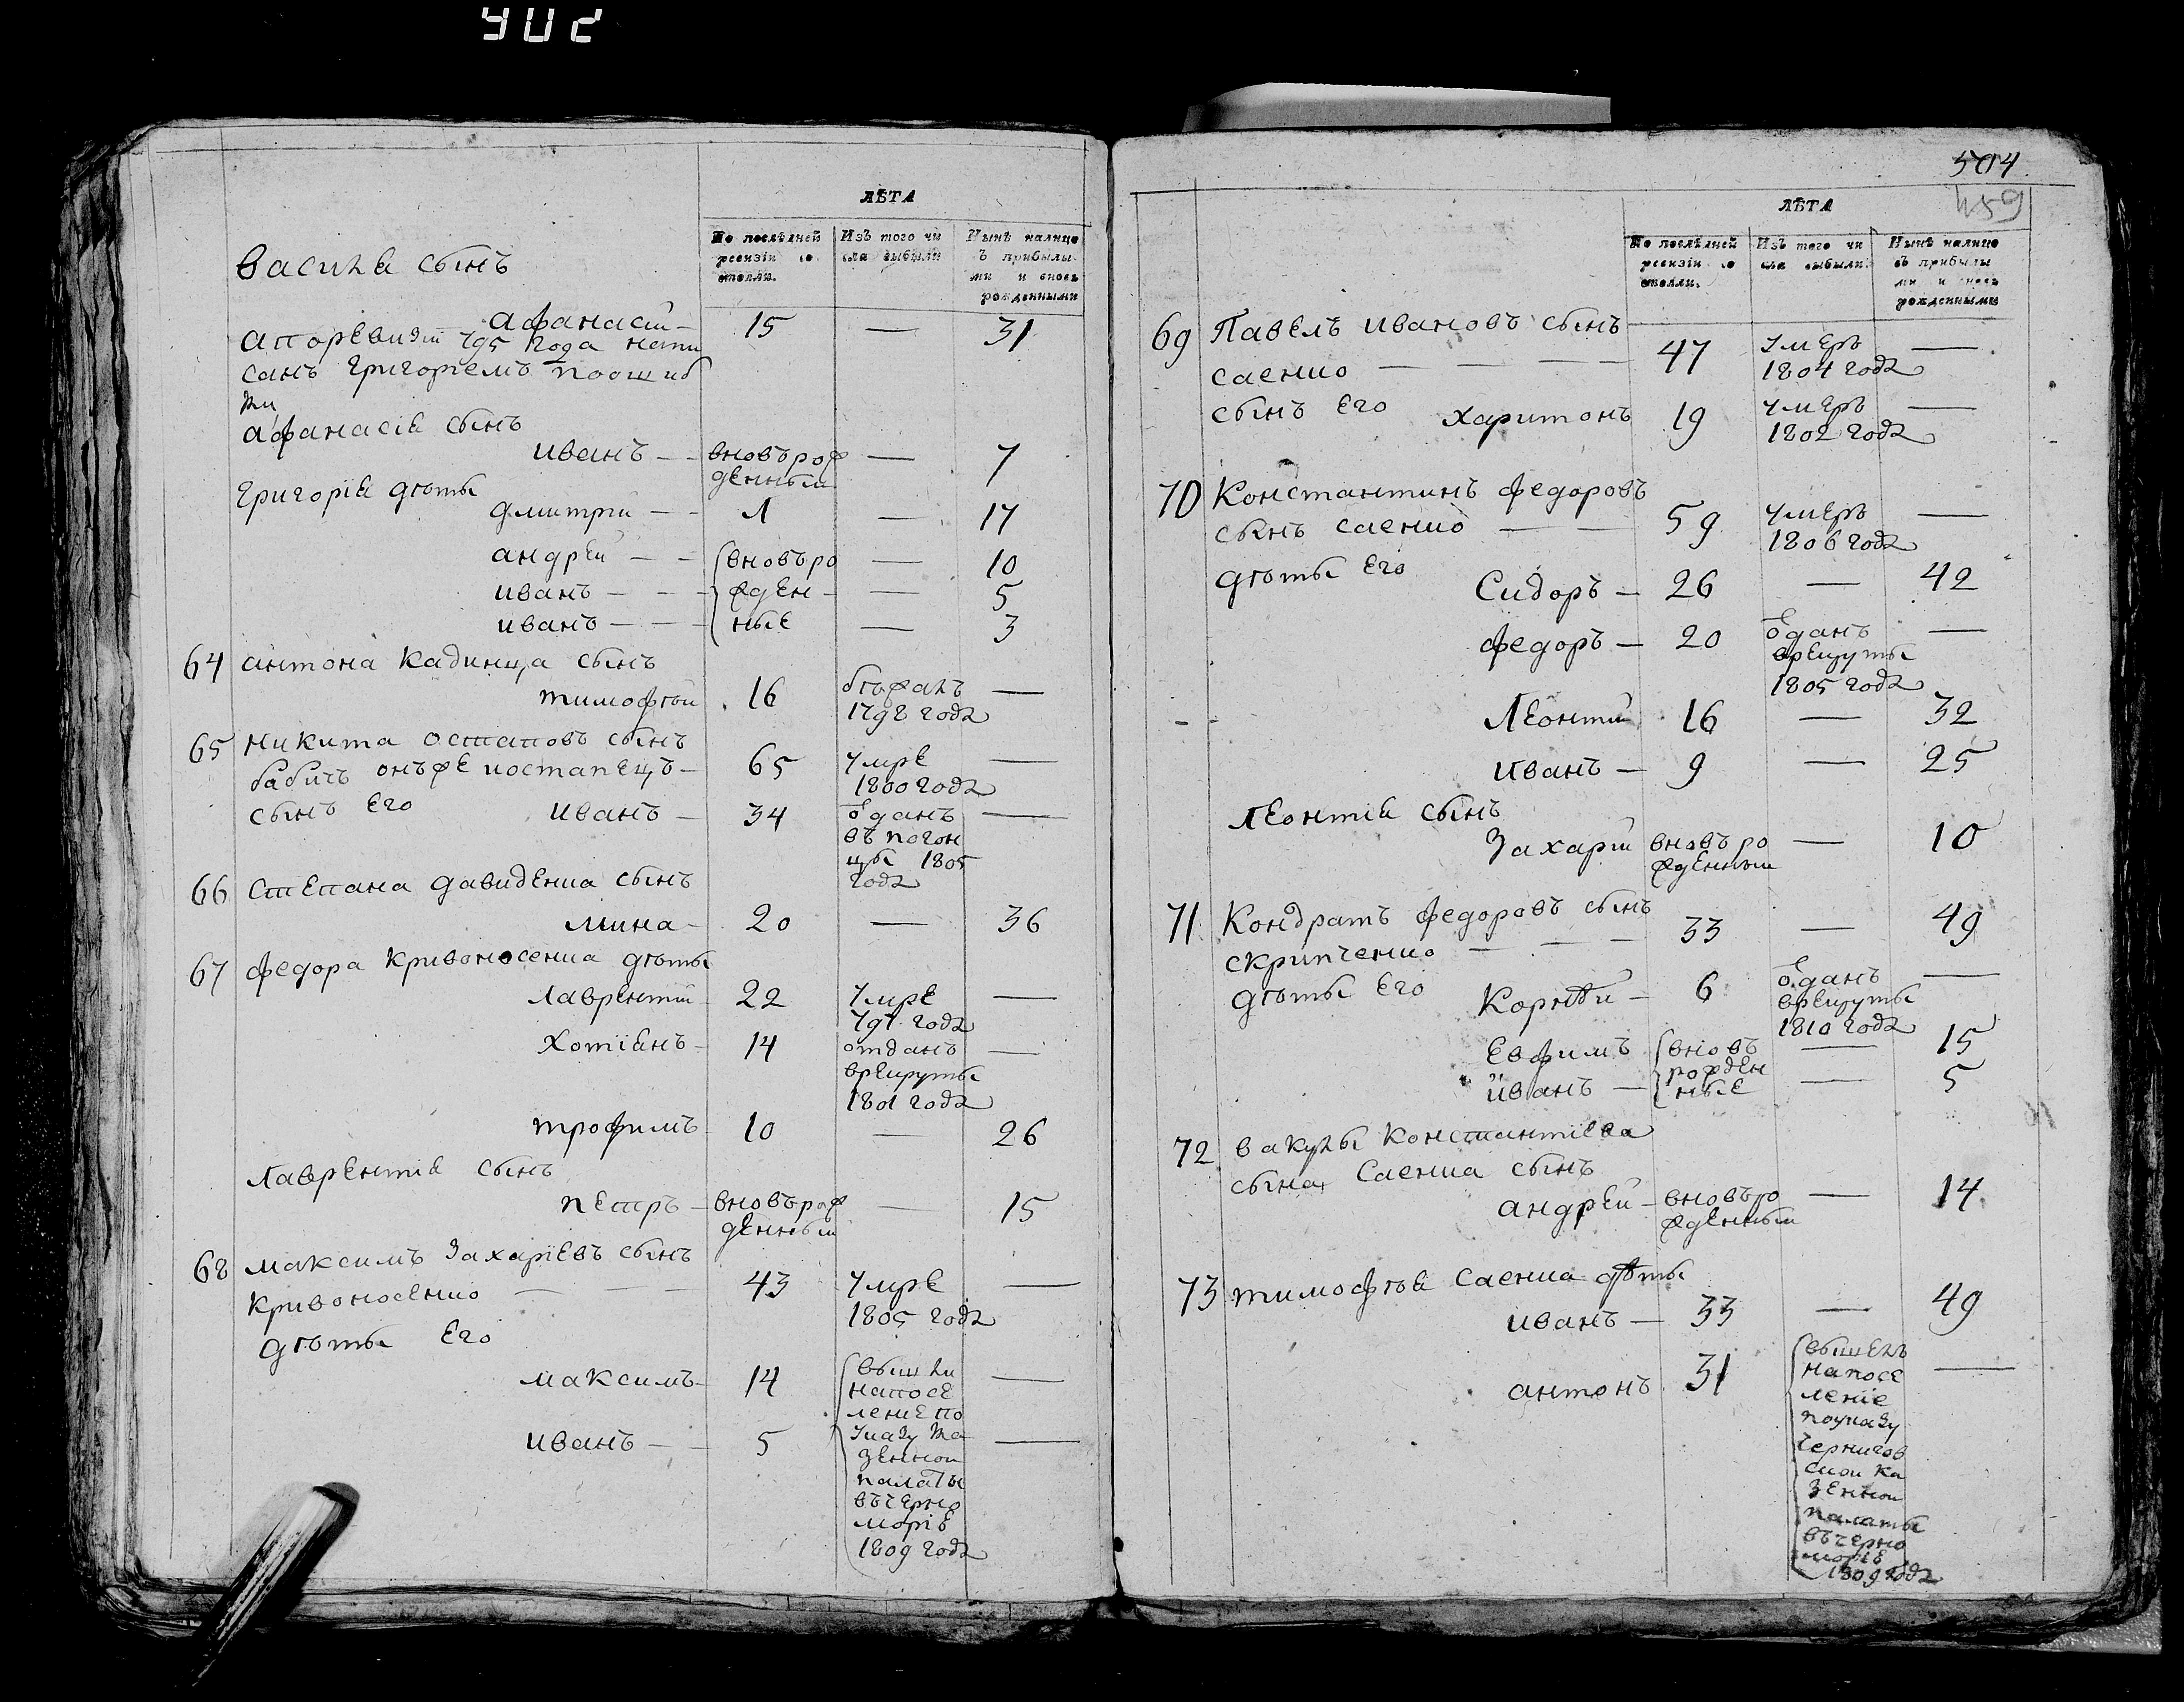 902
ЛѢТА
По послѣдней ревизіи состояли.
Изъ того числа выбыли
Нынѣ налицо съ прибылыми и вновь рожденными
василя сынъ
афанасій — 15 — 31
апоревизіи 795 года напи
санъ григоріемъ поошиб
ки
афанасія сынъ
иванъ — вновърож
денный — 7
григорія дѣты
дмитрій — 1 — 17
андрей — вновъро — 10
иванъ — жден — 5
иванъ — ные — 3
64 антона кадинца сынъ
тимофѣй 16 бѣжалъ —
1798 года
65 никита остаповъ сынъ
бабичъ онъже иостапецъ — 65 умре —
1800 года
сынъ его иванъ — 34 оданъ —
въ погон
цы 1805
года
66 степана давиденка сынъ
мина — 20 — 36
67 федора кривоносенка дѣты
лаврентій 22 умре —
797 года
хотіянъ — 14 отданъ —
врекруты
1801 года
трофимъ 10 — 26
лаврентія сынъ
петръ — вновърож — 15
денный
68 максимъ захаріевъ сынъ
кривоносенко — 43 умре —
1805 года
дѣты его
максимъ — 14 вышли —
напосе
ление по
иванъ — 5 указу ка —
зенной
палаты
въчерно
моріе
1809 года
504
459
ЛѢТА
По послѣдней ревизіи состояли.
Изъ того числа выбыли.
Нынѣ налицо съ прибылыми и вновь рожденными
69 Павелъ ивановъ сынъ
саенко — 47 умеръ —
1804 года
сынъ его харитонъ 19 умеръ —
1802 года
70 Константинъ федоровъ
сынъ саенко — 59 умеръ —
1806 года
дѣты его Сидоръ — 26 — 42
федоръ — 20 оданъ —
врекруты
1805 года
Леонтій 16 — 32
иванъ — 9 — 25
леонтія сынъ
Захарій вновъро — 10
жденный
71 Кондратъ федоровъ сынъ
скрипченко — 33 — 49
дѣты его Корнѣй — 6 оданъ —
врекруты
1810 года
Евфимъ вновъ — 15
рожден
иванъ — ные — 5
72 вакулы константіева
сына саенка сынъ
андрей — вновъро — 14
жденный
73 тимофѣя саенка дѣты
иванъ — 33 — 49
антонъ 31 вышелъ —
напосе
леніе
поуказу
чернигов
скои ка
зенной
палаты
въчерно
моріе
1809 года